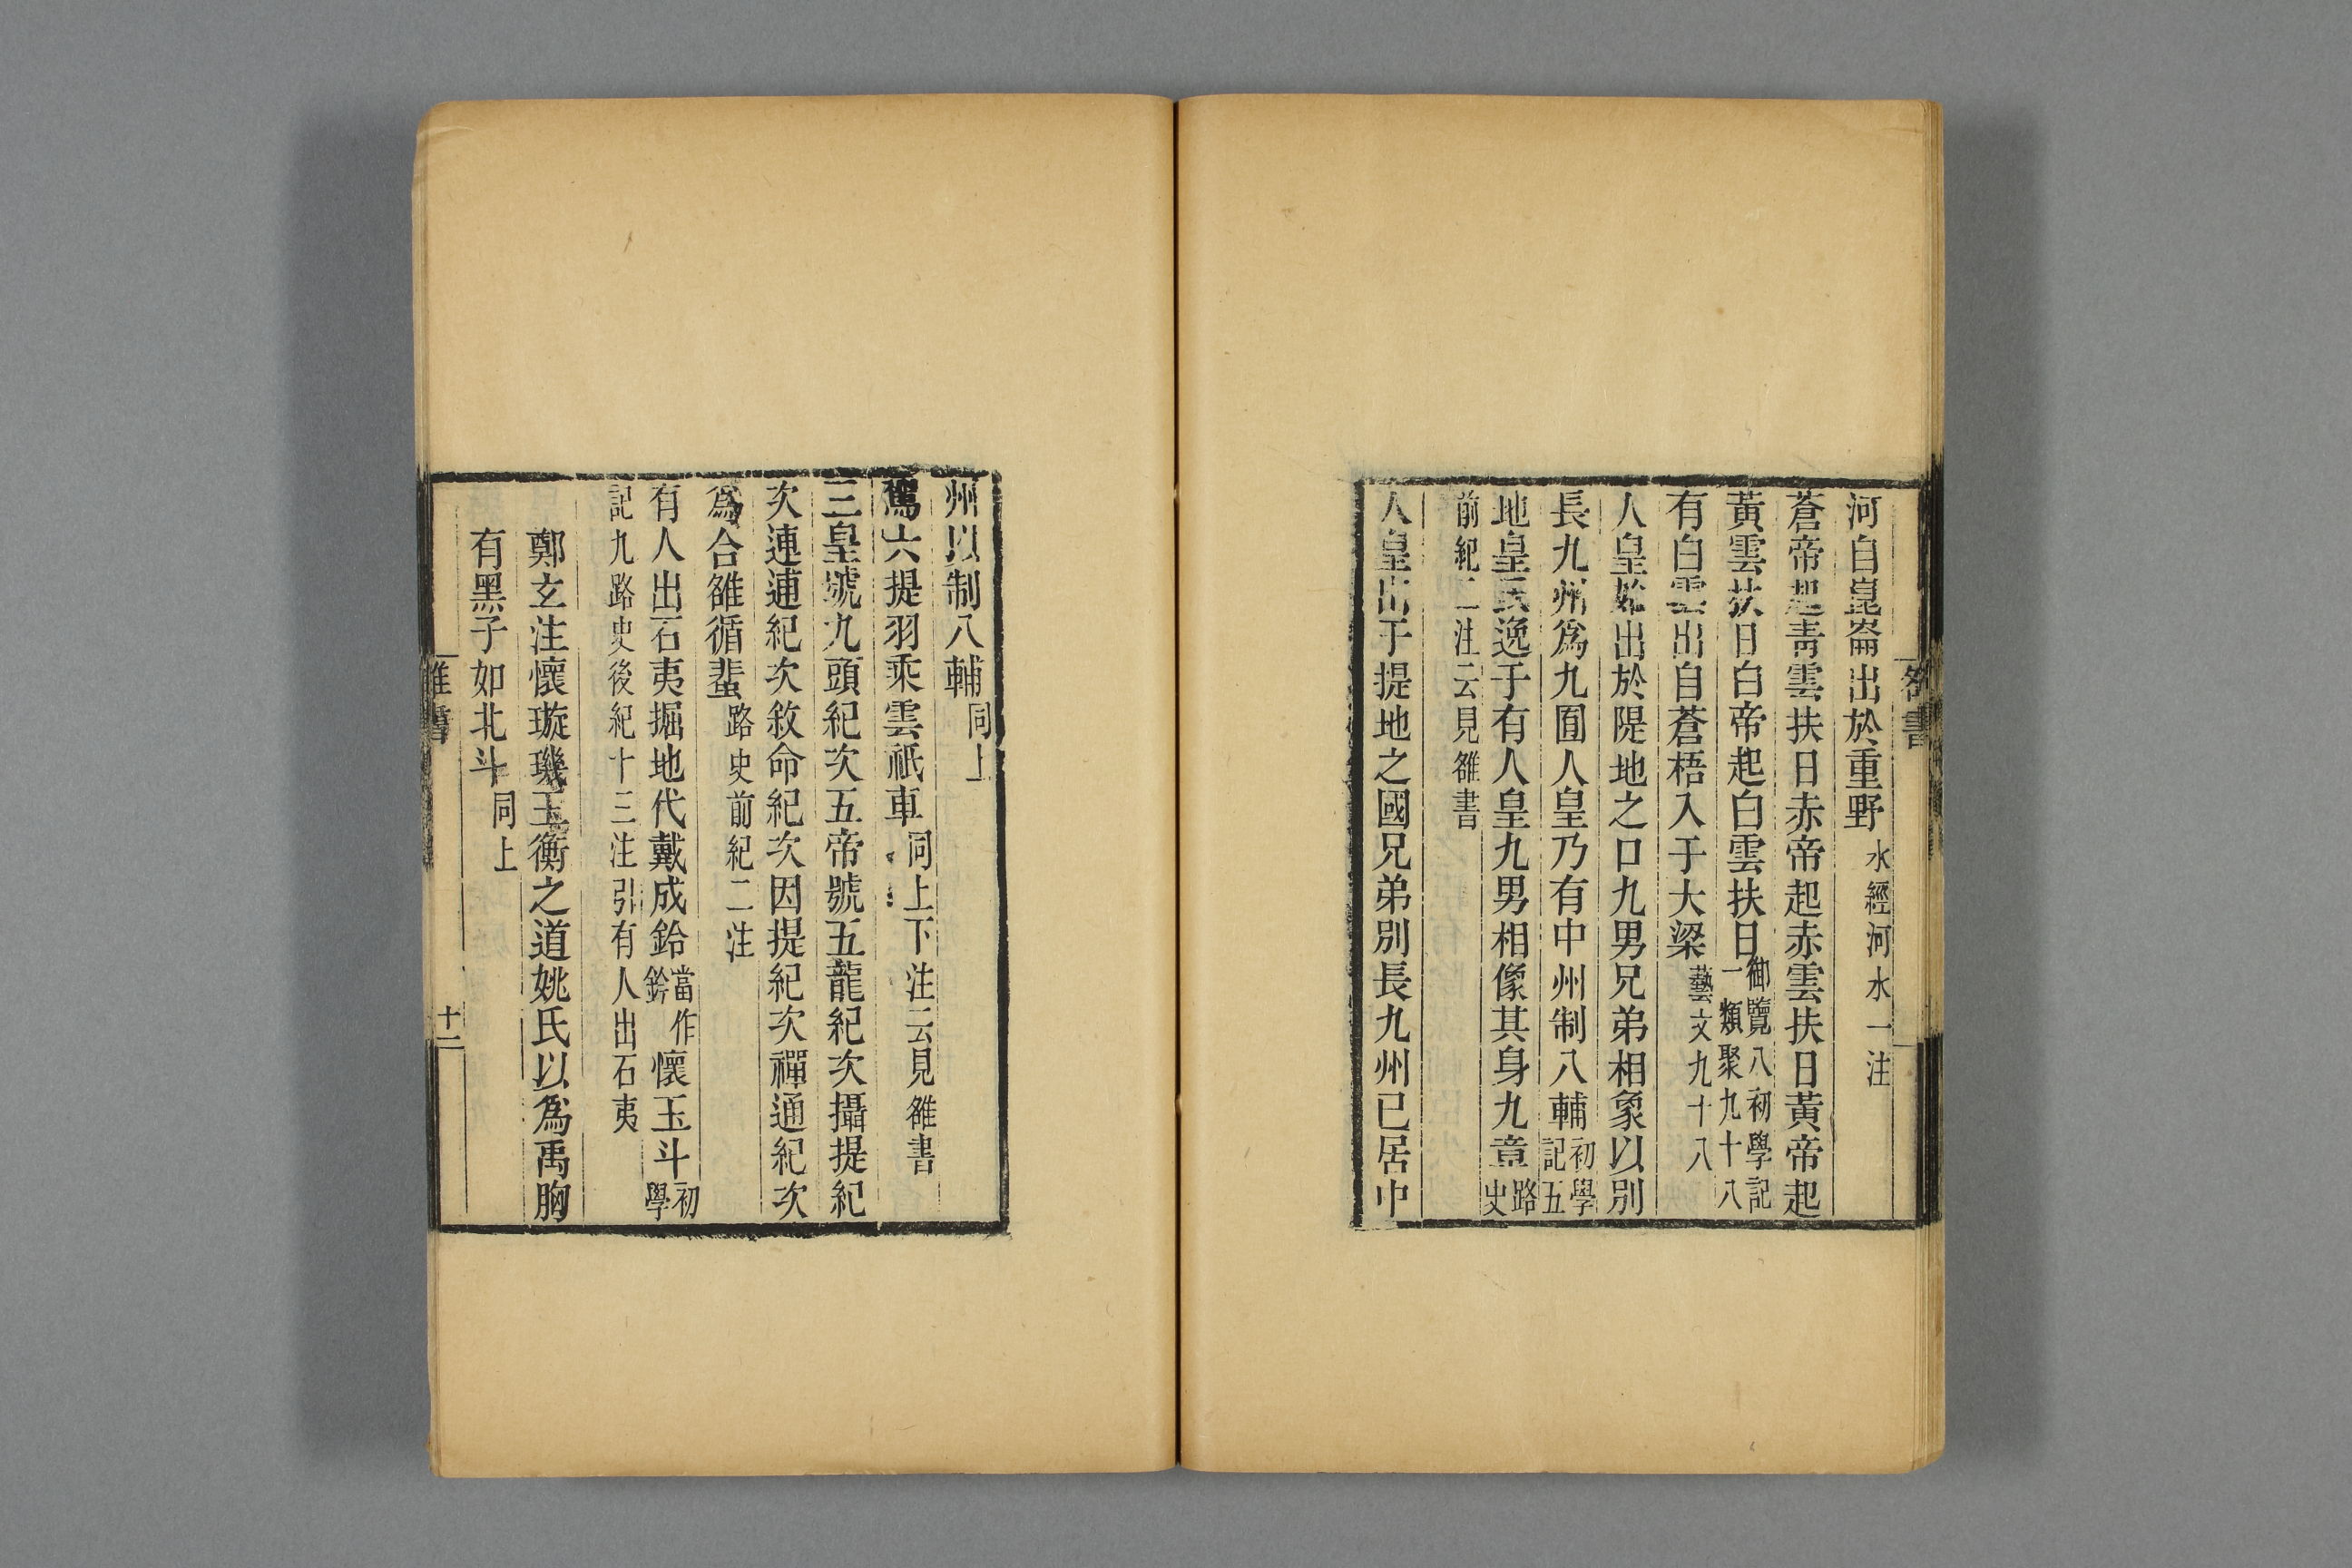 河自崑崙出於重野水經河水一注
蒼帝起青雲扶日赤帝起赤雲扶日黃帝起
黃雲扶日白帝起白雲扶日御覽八初學記一類聚九十八
有白雲出自蒼梧入于大梁藝文九十八
人皇始出於隄地之口九男兄弟相象以別
長九州為九囿人皇乃有中州制八輔初學記五
地皇氏逸于有人皇九男相像其身九章路史
前紀二注云見雒書
人皇出于提地之國兄弟別長九州已居中
州以制八輔同上
駕六提羽乘雲祇車同上下注云見雒書
三皇號九頭紀次五帝號五龍紀次攝提紀
次連逋紀次敘命紀次因提紀次禪通紀次
為合雒循蜚路史前紀二注
有人出石夷掘地代戴成鈴當作鈐懷玉斗初學
記九路史後紀十三注引有人出石夷
鄭玄注懷璇璣玉衡之道姚氏以為禹胸
有黑子如北斗同上
雒書
十二